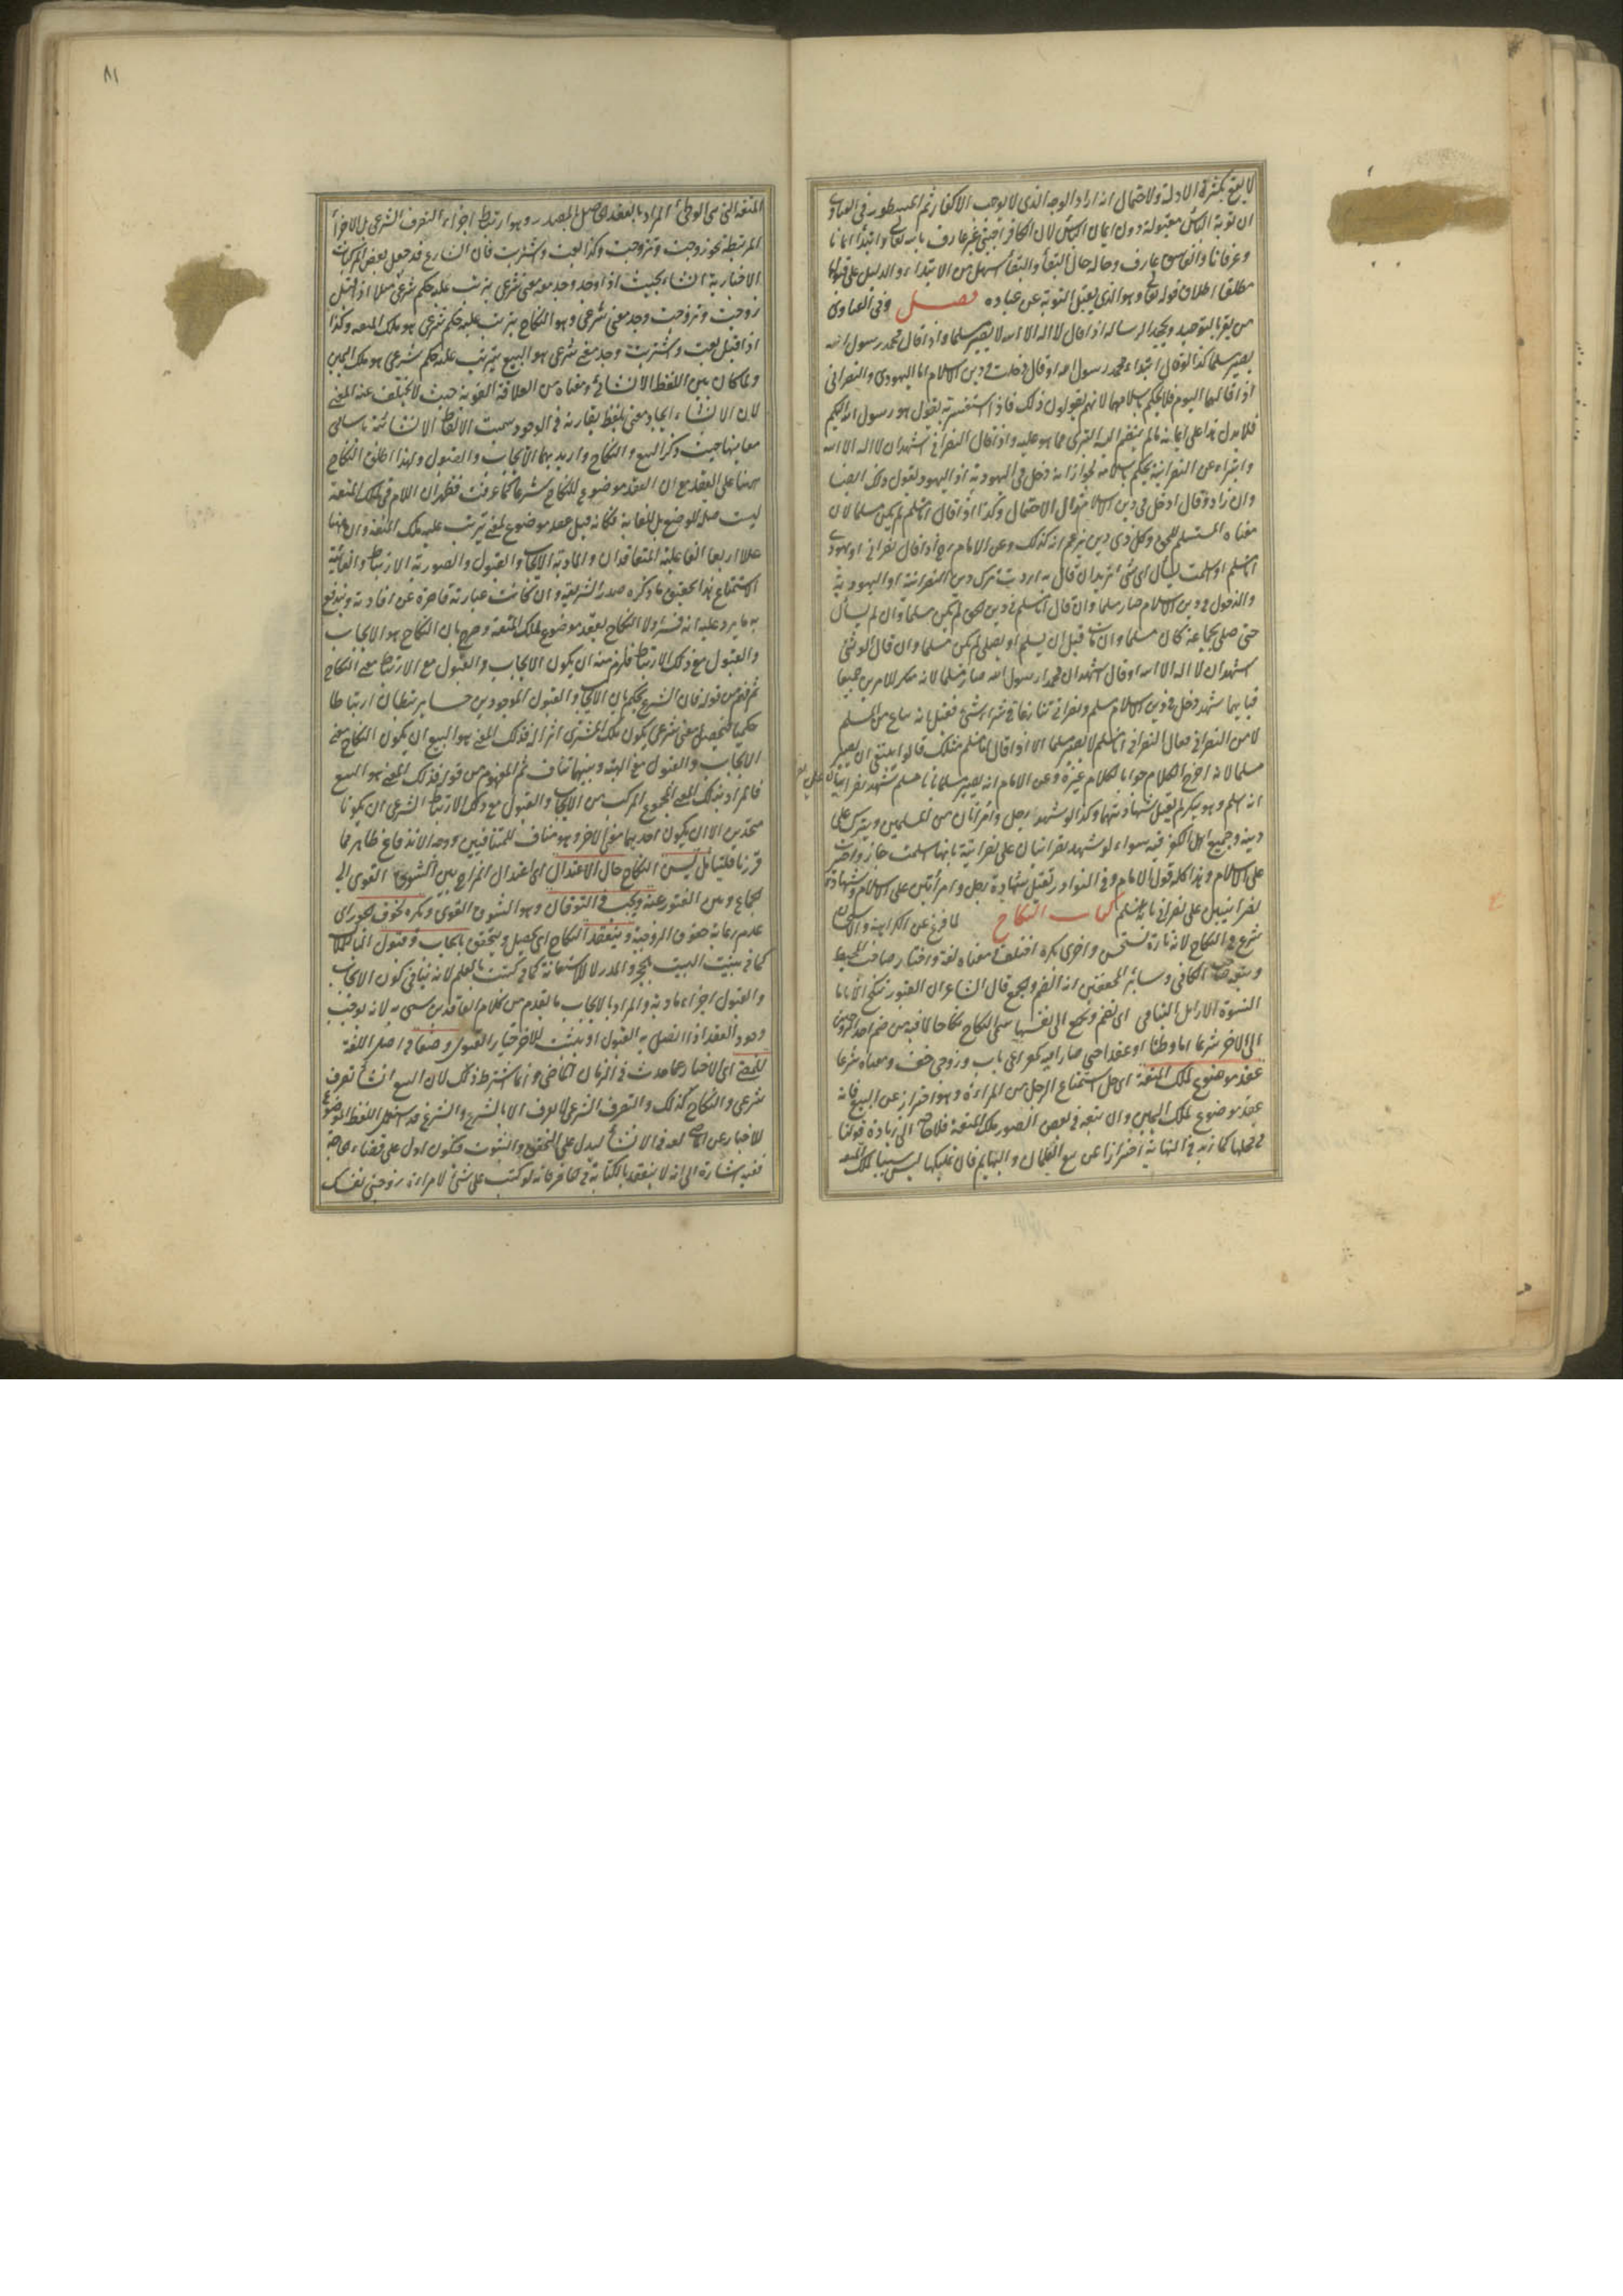 لا يعتق بكثرة الادلة ولاحتمال انه اراد الوجه الذى لا يوجب الاكفار ثم المسطور فى الفتاوى
ان توبة اليأس مقبولة دون ايمان اليأس لان الكافر اجنبى غير عارف بالله تعالى وابتدأ ايمانا
وعرفانا والفاسق عارف وحاله حال البقاء والبقاء اسهل من الابتداء والدليل على قبولها
مطلقا اطلاق قوله تعالى وهو الذى يقبل التوبة عن عباده فصل وفى الفتاوى
من يقر بالتوحيد ويجحد الرسالة اذا قال لا اله الا الله لا يصير مسلما واذا قال محمد رسول الله
يصير مسلما كذا لو قال اشهد ان محمدا رسول الله او قال دخلت فى دين الاسلام اما اليهودى والنصرانى
اذا قالها اليوم فلا يحكم باسلامهما لانهم يقولون ذلك فاذا استفسرته يقول هو رسول الله اليكم
فلا يدل هذا على ايمانه ما لم ينضم اليه التبرى مما هو عليه واذا قال النصرانى اشهد ان لا اله الا الله
واتبرأ عن النصرانية لا يحكم باسلامه لجواز انه دخل فى اليهودية اذ اليهود تقول ذلك ايضا
وان زاد وقال ادخل فى دين الاسلام زال الاحتمال وكذا اذا قال انا مسلم لم يكن مسلما لان
معناه المستسلم للحق وكل ذى دين يزعم انه كذلك وعن الامام رح اذا قال نصرانى او يهودى
انا مسلم او اسلمت يسأل اى شئ تريد ان قال به اردت ترك دين النصرانية او اليهودية
والدخول فى دين الاسلام صار مسلما وان قال انا مسلم فى دين الحق لم يكن مسلما وان لم يسأل
حتى صلى بجماعة كان مسلما وان مات قبل ان يسلم او يصلى لم يكن مسلما وان قال الوثنى
اشهد ان لا اله الا الله او قال اشهد ان محمدا رسول الله صار مسلما لانه منكر للامرين جميعا
فبايهما شهد دخل فى دين الاسلام مسلم ونصرانى تنازعا فى شراء شئ فقيل انه يباع من المسلم
لا من النصرانى فقال النصرانى انا مسلم لا يصير مسلما الا اذا قال انا مسلم مثلك قالوا ينبغى ان يصير
مسلما لانه اخرج الكلام جوابا لكلام غيره وعن الامام انه يصير مسلما بانا مسلم شهد نصرانيان على نصر
انه اسلم وهو ينكر لم يقبل شهادتهما وكذا لو شهد رجل وامرأتان من المسلمين ويترك على
دينه وجميع اهل الكفر فيه سواء لو شهد نصرانيان على نصرانية بانها اسلمت جاز واجبرت
على الاسلام وهذا كله قول الامام وفى النوادر تقبل شهادة رجل وامرأتين على الاسلام وشهادة
نصرانيين على نصرانى بانه اسلم كتاب النكاح لما فرغ عن الكراهية والاستحسان
شرع فى النكاح لانه تارة يستحسن واخرى يكره اختلف فى معناه لغة واختار صاحب المحيط
وتبعه صاحب الكافى وسائر المحققين انه الضم والجمع قال الشاعر ان القبور تنكح الايامى
النسوة الارامل اليتامى اى تضم وتجمع الى نفسها سمى النكاح نكاحا لما فيه من ضم احد الزوجين
الى الاخر شرعا اما وطئا او عقدا حتى صارا فيه كمصراعى باب وزوجى خف ومعناه شرعا
عقد موضوع لملك المتعة اى حل استمتاع الرجل من المرأة وهو احتراز عن البيع فانه
عقد موضوع لملك اليمين وان تبعه فى بعض الصور ملك المتعة فلا حاجة الى زيادة قولنا
فى محلها كما زيد فى النهاية احترازا عن بيع الغلمان والبهائم فان تمليكها ليس سببا لملك المتعة
٨١
المتعة التى هى الوطئ المراد بالعقد الحاصل بالمصدر وهو ارتباط اجزاء التصرف الشرعى بل الاجزاء
المرتبطة نحو زوجت وتزوجت وكذا بعت واشتريت فان الشارع قد جعل بعض المركبات
الاخبارية انشاء بحيث اذا وجد وجد معه معنى شرعى يترتب عليه حكم شرعى مثلا اذا قيل
زوجت وتزوجت وجد معنى شرعى وهو النكاح يترتب عليه حكم شرعى هو ملك المتعة وكذا
اذا قيل بعت واشتريت وجد معنى شرعى هو البيع يترتب عليه حكم شرعى هو ملك اليمين
ولما كان بين اللفظ الانشائى ومعناه من العلاقة القوية حيث لا يتخلف عنه المعنى
لان الانشاء ايجاد معنى بلفظ يقارنه فى الوجود سميت الالفاظ الانشائية باسامى
معانيها حيث ذكر البيع والنكاح واريد بهما الايجاب والقبول ولهذا اطلق النكاح
ههنا على العقد مع ان العقد موضوع للنكاح شرعا كما عرفت فظهر ان اللام فى لملك المتعة
ليست صلة للوضع بل للغاية فكانه قيل عقد موضوع لمعنى يترتب عليه ملك المتعة وان ههنا
عللا اربعا الفاعلية المتعاقدان والمادية الايجاب والقبول والصورية الارتباط والغائية
الاستمتاع هذا تحقيق ما ذكره صدر الشريعة وان كانت عبارته قاصرة عن افادته ويندفع
به ما يرد عليه انه فسر اولا النكاح بعقد موضوع لملك المتعة وصرح بان النكاح هو الايجاب
والقبول مع ذلك الارتباط فلزم منه ان يكون الايجاب والقبول مع الارتباط معنى النكاح
ثم فهم من قوله فان الشرع يحكم بان الايجاب والقبول الموجودين حسا يرتبطان ارتباطا
حكميا فيحصل معنى شرعى يكون ملك المشترى اثرا له فذلك المعنى هو البيع ان يكون النكاح معنى
الايجاب والقبول مع الهيئة وبينهما تناف ثم المفهوم من قوله فذلك المعنى هو البيع
فالمراد بذلك المعنى المجموع المركب من الايجاب والقبول مع ذلك الارتباط الشرعى ان يكونا
متحدين الا ان يكون احدهما معنى الاخر وهو مناف للمتنافيين ووجه الاندفاع ظاهر مما
قررنا فليتأمل يسن النكاح حال الاعتدال اى اعتدال المزاج بين الشوق القوى الى
الجماع وبين الفتور عنه ويجب فى التوقان وهو الشوق القوى ويكره لخوف الجور اى
عدم رعاية حقوق الزوجية وينعقد النكاح اى يحصل ويتحقق بايجاب وقبول الباء للملابسة
كما فى بنيت البيت بالحجر والمدر لا للاستعانة كما فى كتبت بالقلم لانه ينافى كون الايجاب
والقبول اجزاء مادية والمراد بالايجاب ما تقدم من كلام العاقدين سمى به لانه يوجب
وجود العقد اذا اتصل به القبول او يثبت للاخر خيار القبول وضعا فى اصل اللغة
للمضى اى للاخبار عما حدث فى الزمان الماضى وانما اشترط ذلك لان البيع انشاء تصرف
شرعى والنكاح كذلك والتصرف الشرعى لا يعرف الا بالشرع والشرع قد استعمل اللفظ الموضوع
للاخبار عن الماضى لغة فى الانشاء ليدل على التحقق والثبوت فيكون ادل على قضاء الحاجة
ففيه اشارة الى انه لا ينعقد بالكتابة فى الحاضر فانه لو كتب على شئ لامرأة زوجينى نفسك